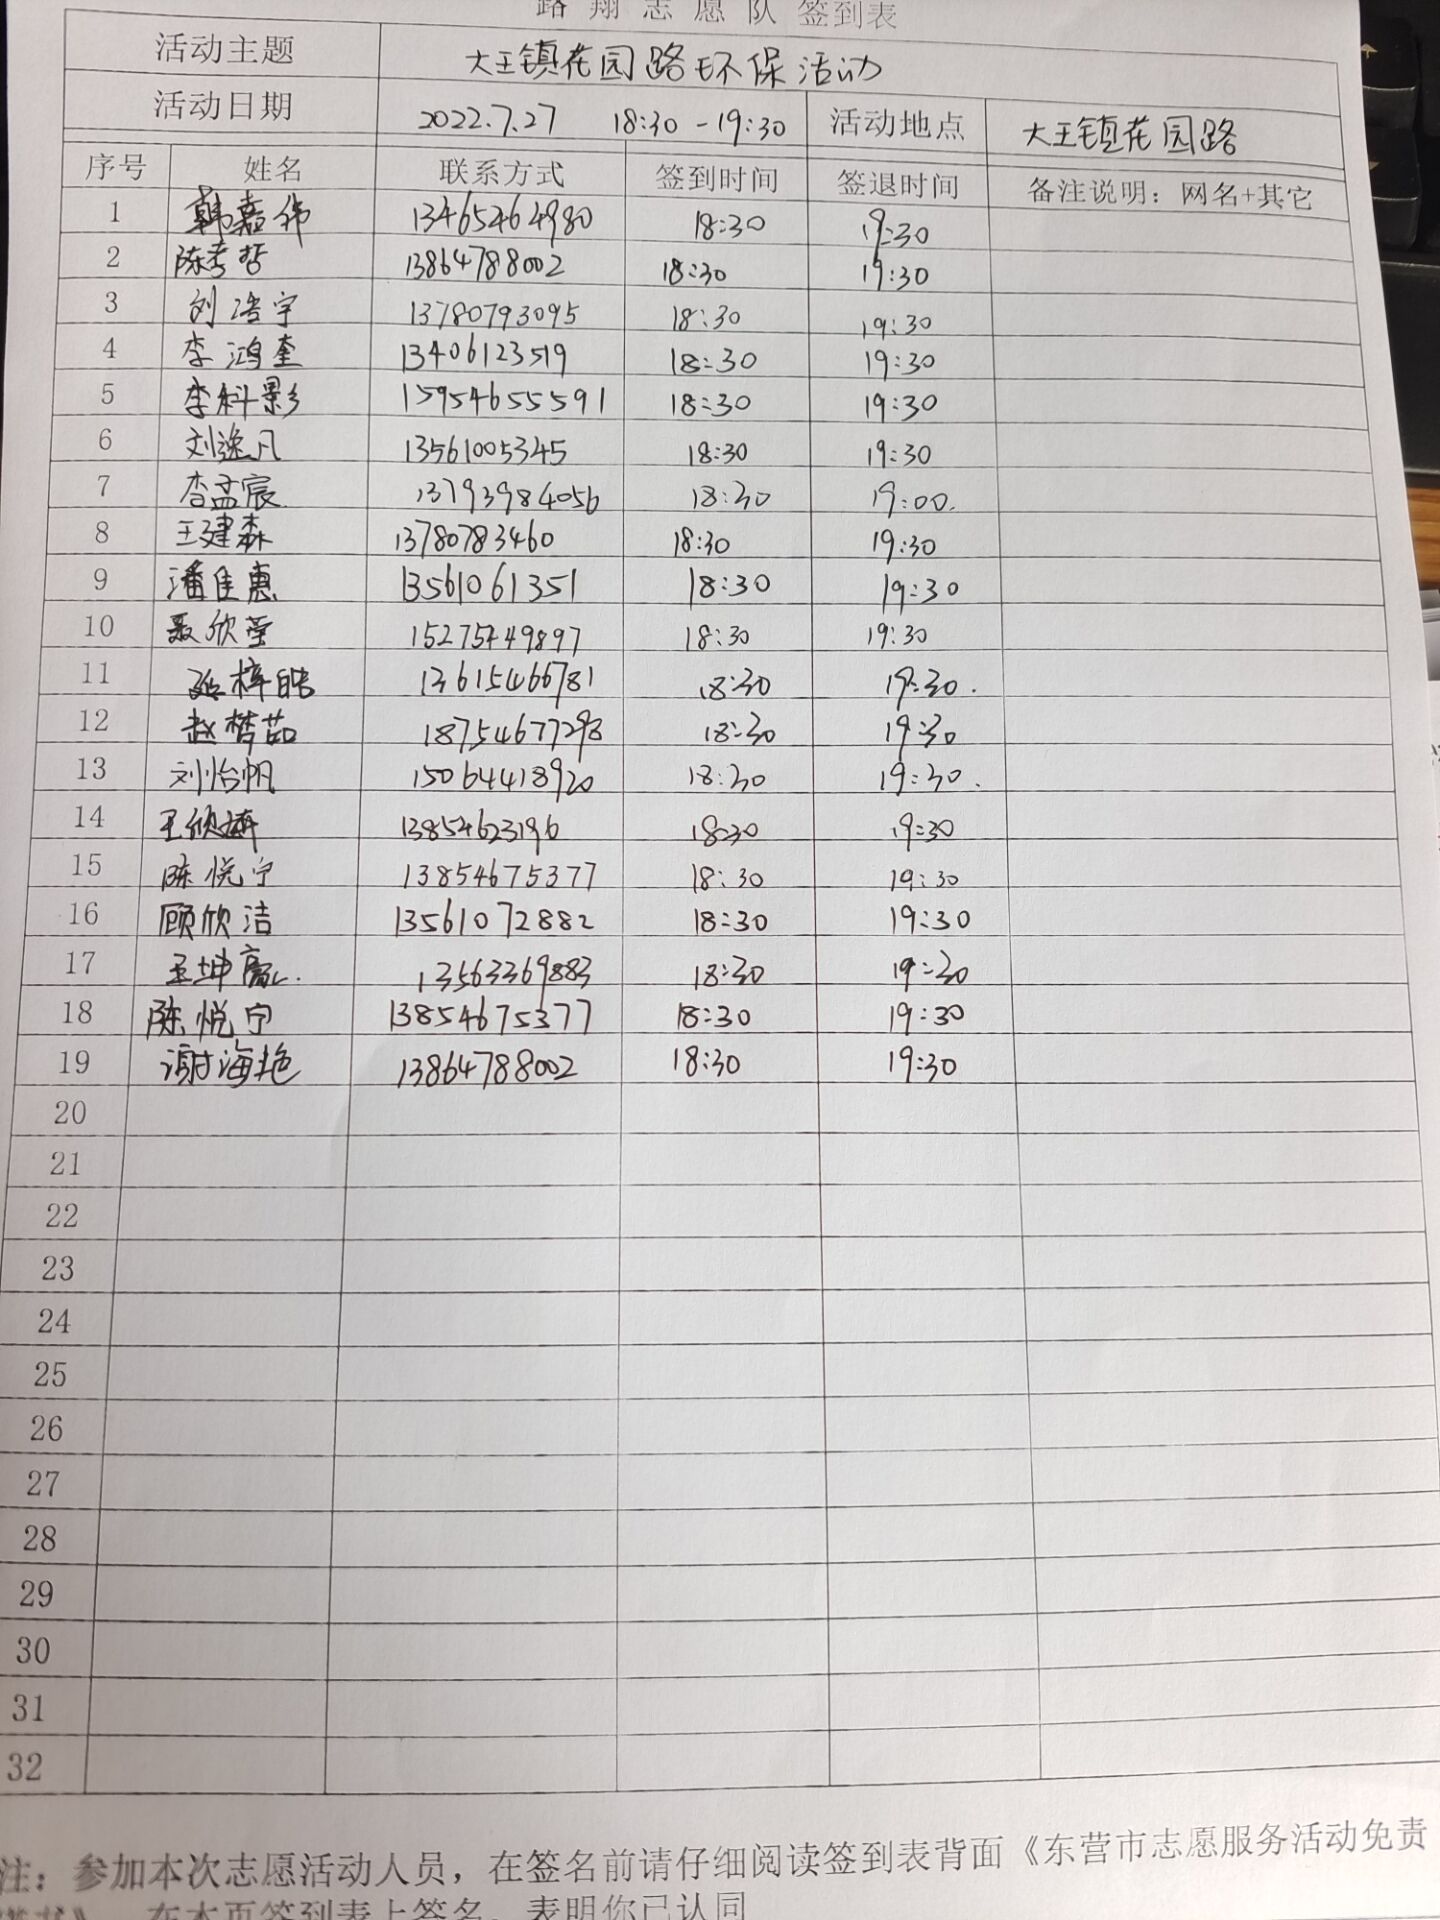 路翔志愿队签到表
活动主题 大王镇花园路环保活动
活动日期 2022.7.27 18:30-19:30 活动地点 大王镇花园路
序号 姓名 联系方式 签到时间 签退时间 备注说明：网名+其它
1 韩嘉伟 13465464980 18:30 19:30
2 陈孝哲 13864788002 18:30 19:30
3 刘浩宇 13780793095 18:30 19:30
4 李鸿奎 13406123519 18:30 19:30
5 李科影 15954655591 18:30 19:30
6 刘逸凡 13561005345 18:30 19:30
7 李孟宸 13793984056 18:30 19:00.
8 王建森 13780783460 18:30 19:30
9 潘佳惠 13561061351 18:30 19:30
10 聂欣莹 15275449897 18:30 19:30
11 延梓皓 13615466781 18:30 19:30.
12 赵梦茹 18754677298 18:30 19:30
13 刘怡帆 15064418920 18:30 19:30.
14 王欣 13854623196 18:30 19:30
15 陈悦宁 13854675377 18:30 19:30
16 顾欣洁 13561072882 18:30 19:30
17 王坤 13563369883 18:30 19:30
18 陈悦宁 13854675377 18:30 19:30
19 谢海艳 13864788002 18:30 19:30
20
21
22
23
24
25
26
27
28
29
30
31
32
注：参加本次志愿活动人员，在签名前请仔细阅读签到表背面《东营市志愿服务活动免责
》，在本页签到表上签名，表明你已认同